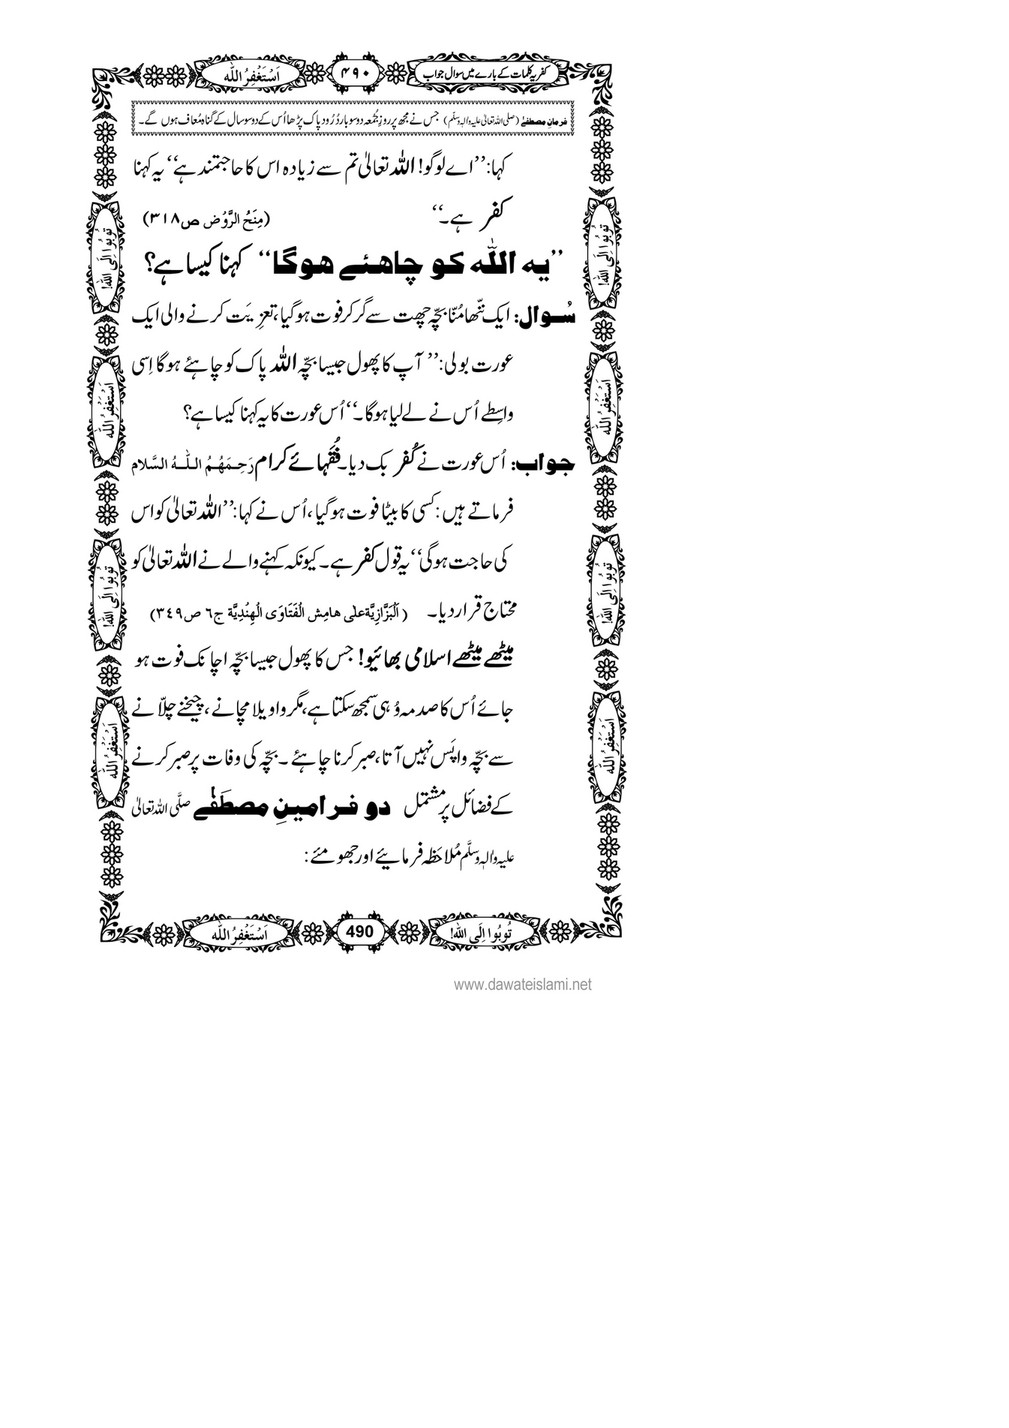 کفریہ کلمات کے بارے میں سوال جواب
۴۹۰
اَسْتَغْفِرُ اللّٰه
فرمانِ مصطفےٰ (صلی اللہ تعالیٰ علیہ والہٖ وسلّم) جس نے مجھ پر روزِ جُمُعہ دو سو بار دُرُود پاک پڑھا اُس کے دو سو سال کے گناہ مُعاف ہوں گے۔
کہا: ’’اے لوگو! اللہ تعالیٰ تم سے زیادہ اس کا حاجتمند ہے‘‘ یہ کہنا
کفر ہے۔‘‘ (مِنَحُ الرَّوْض ص۳۱۸)
’’یہ اللّٰه کو چاہئے ہوگا‘‘ کہنا کیسا ہے؟
سُوال: ایک ننّھا مُنّا بچّہ چھت سے گر کر فوت ہوگیا، تعزِیَت کرنے والی ایک
عورت بولی: ’’آپ کا پھول جیسا بچّہ اللہ پاک کو چاہئے ہوگا اِسی
واسِطے اُس نے لے لیا ہوگا۔‘‘ اُس عورت کا یہ کہنا کیسا ہے؟
جواب: اُس عورت نے کُفر بک دیا۔ فُقَہائے کرام رَحِمَهُمُ اللّٰهُ السَّلام
فرماتے ہیں: کسی کا بیٹا فوت ہوگیا، اُس نے کہا: ’’اللہ تعالیٰ کو اس
کی حاجت ہوگی‘‘ یہ قول کفر ہے۔ کیونکہ کہنے والے نے اللہ تعالیٰ کو
محتاج قرار دیا۔ (اَلْبَزَّازِيَّة علی هامِش الْفَتَاوَی الْهِنْدِيَّة ج٦ ص۳٤۹)
میٹھے میٹھے اسلامی بھائیو! جس کا پھول جیسا بچّہ اچانک فوت ہو
جائے اُس کا صدمہ وُہی سمجھ سکتا ہے، مگر واویلا مچانے، چیخنے چلّانے
سے بچّہ واپَس نہیں آتا، صبر کرنا چاہئے۔ بچّہ کی وفات پر صبر کرنے
کے فضائل پر مشتمل دو فرامینِ مصطَفٰے صلَّی اللہ تعالیٰ
علیہ والہٖ وسلَّم مُلاحَظہ فرمائیے اور جھومئے:
تُوبُوا اِلَی اللّٰه!
اَسْتَغْفِرُ اللّٰه
تُوبُوا اِلَی اللّٰه!
اَسْتَغْفِرُ اللّٰه
تُوبُوا اِلَی اللّٰه!
اَسْتَغْفِرُ اللّٰه
تُوبُوا اِلَی اللّٰه!
اَسْتَغْفِرُ اللّٰه
تُوبُوا اِلَی اللّٰه!
490
اَسْتَغْفِرُ اللّٰه
www.dawateislami.net